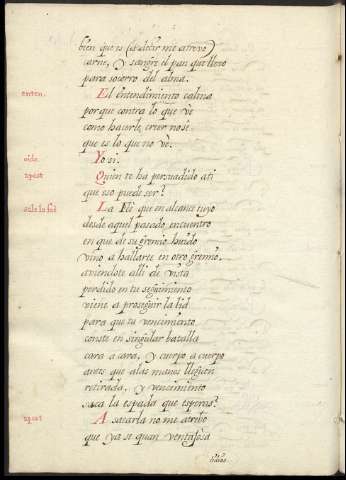 bien que es (a decir me atrevo)
carne, y sangre el pan que llevo
para socorro del alma.
enten. El Entendimiento calma
porque contra lo que vè
como hacerle creer no sè
que es lo que no vè.
oido. Yo si.
apost. Quien te ha persuadido a ti
que eso puede ser?
sale la fee La Fè que en alcance tuyo
desde aquel pasado encuentro
en que de su gremio huido
vino a hallarte en otro gremio.
aviendote alli de vista
perdido en tu seguimiento
viene a proseguir la lid
para que tu vencimiento
conste en singular batalla
cara a cara, y cuerpo a cuerpo
antes que a las manos lleguen
retirada, y vencimiento
saca la espada que esperas?
apost. A sacarla no me atrebo
que ya se quan ventajosa